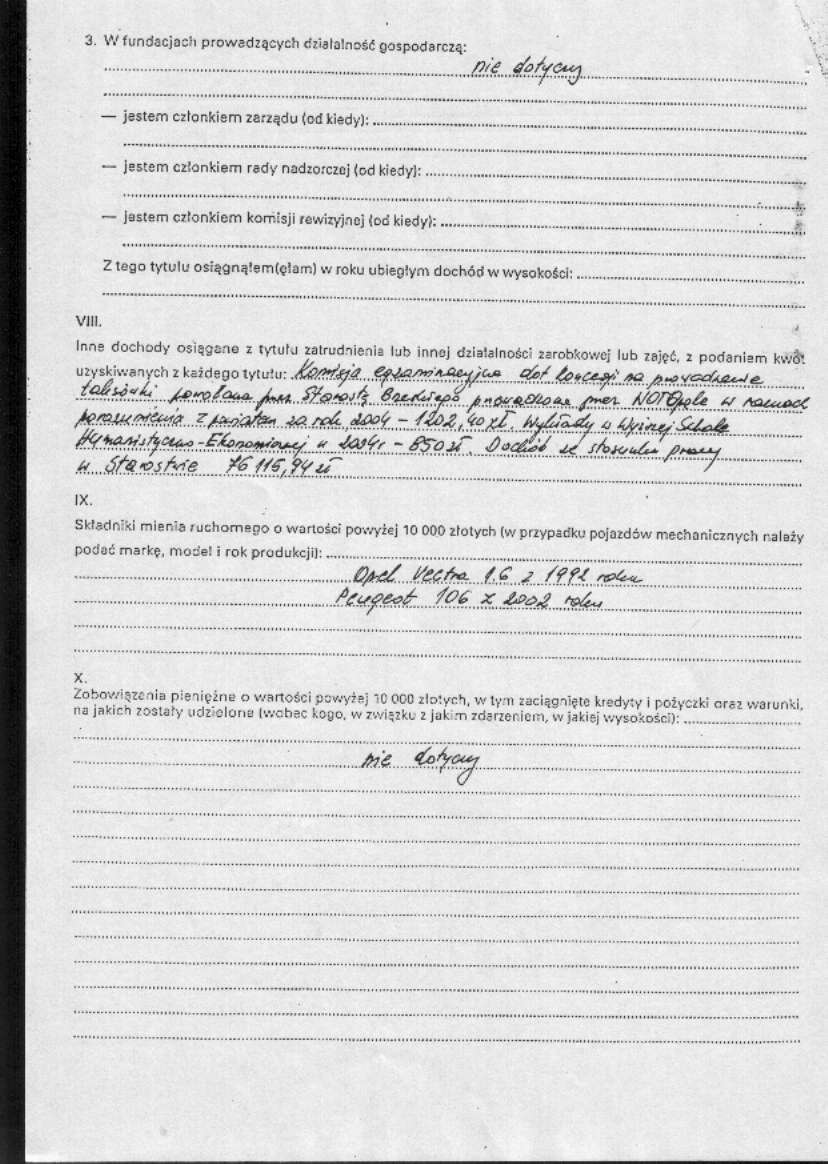 3. W fundacjach prowadzących działalność gospodarczą:
nie dotyczy
— jestem członkiem zarządu (od kiedy):
— jestem członkiem rady nadzorczej (od kiedy):
— jestem członkiem komisji rewizyjnej (od kiedy):
Z tego tytułu osiągnąłem(ęłam) w roku ubiegłym dochód w wysokości:
VIII.
Inne dochody osiągane z tytułu zatrudnienia lub innej działalności zarobkowej lub zajęć, z podaniem kwot
uzyskiwanych z każdego tytułu: Komisja egzaminacyjna dot koncesji na prowadzenie
taksówki powołana przez Starostę Brzeskiego prowadzona przez NOT Opole w ramach
porozumienia z powiatem za rok 2004 – 1202,40 zł. Wykłady w Wyższej Szkole
Humanistyczno-Ekonomicznej w 2004r – 850 zł. Dochód ze stosunku pracy
w Starostwie 76 115,94 zł
IX.
Składniki mienia ruchomego o wartości powyżej 10 000 złotych (w przypadku pojazdów mechanicznych należy
podać markę, model i rok produkcji):
Opel Vectra 1.6 z 1992 roku
Peugeot 106 z 2002 roku
X.
Zobowiązania pieniężne o wartości powyżej 10 000 złotych, w tym zaciągnięte kredyty i pożyczki oraz warunki,
na jakich zostały udzielone (wobec kogo, w związku z jakim zdarzeniem, w jakiej wysokości):
nie dotyczy